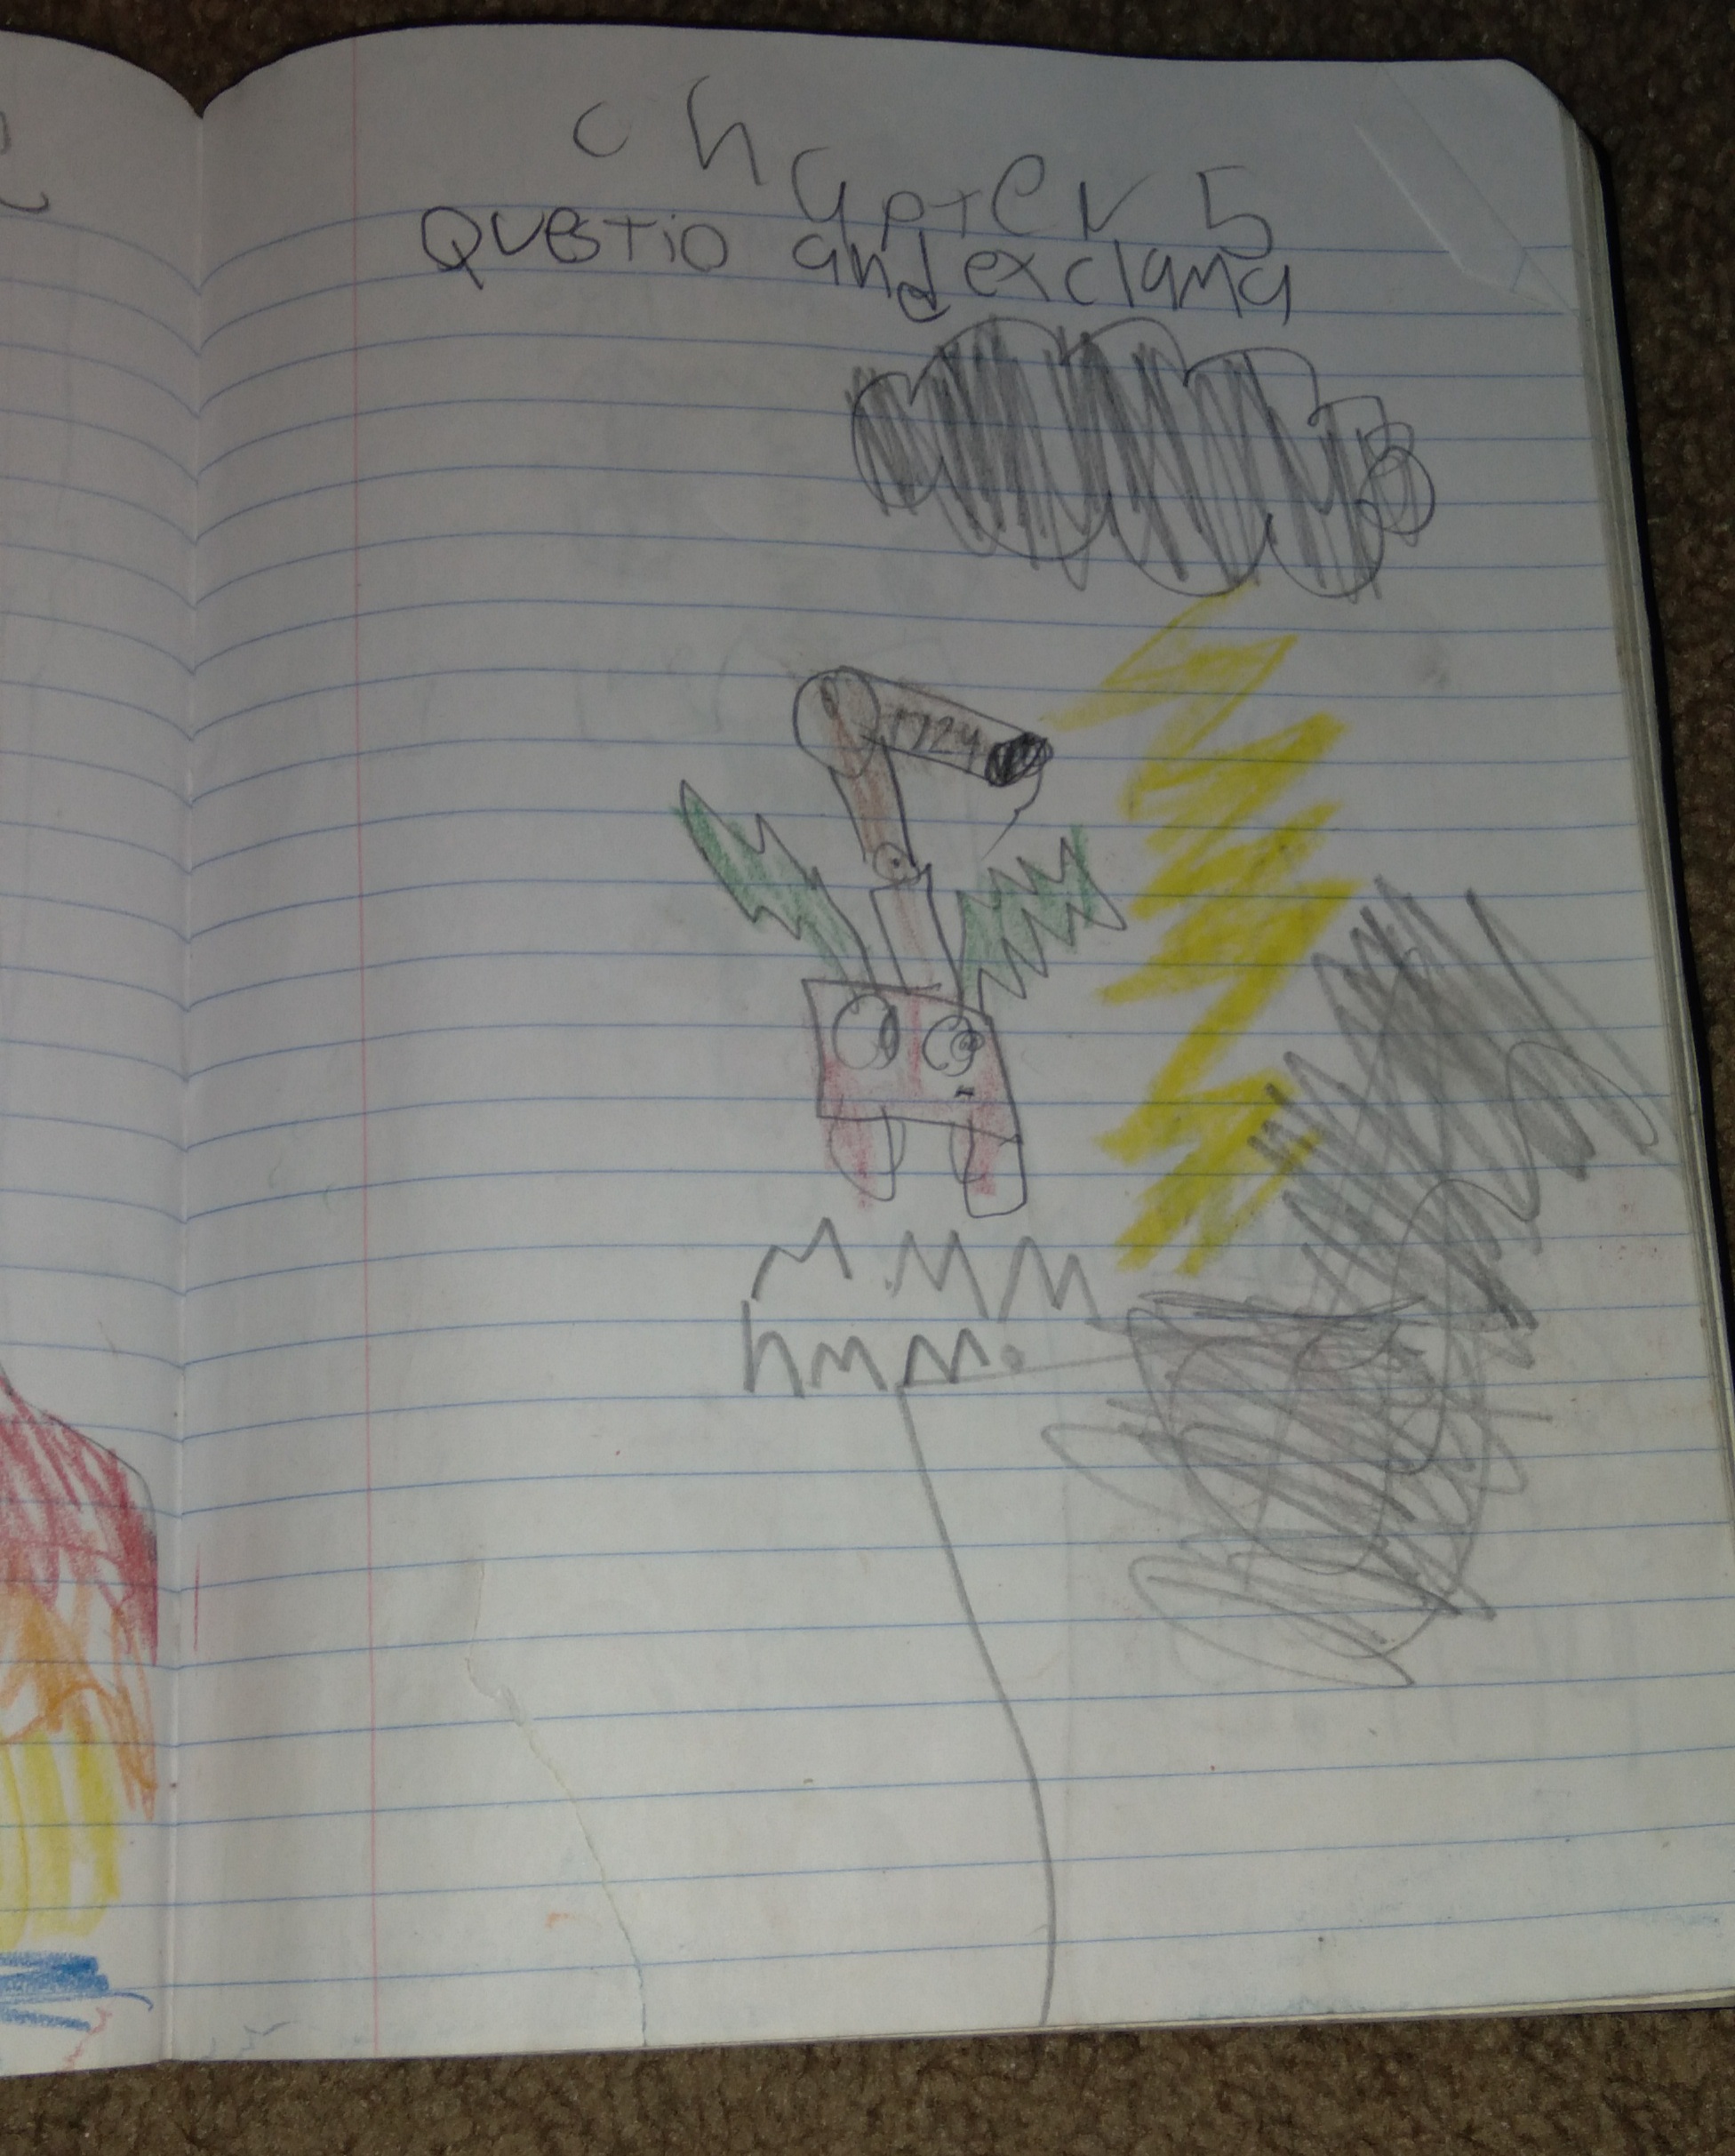 chapter 5
Questio and exclama
1724
MMM
hmm.